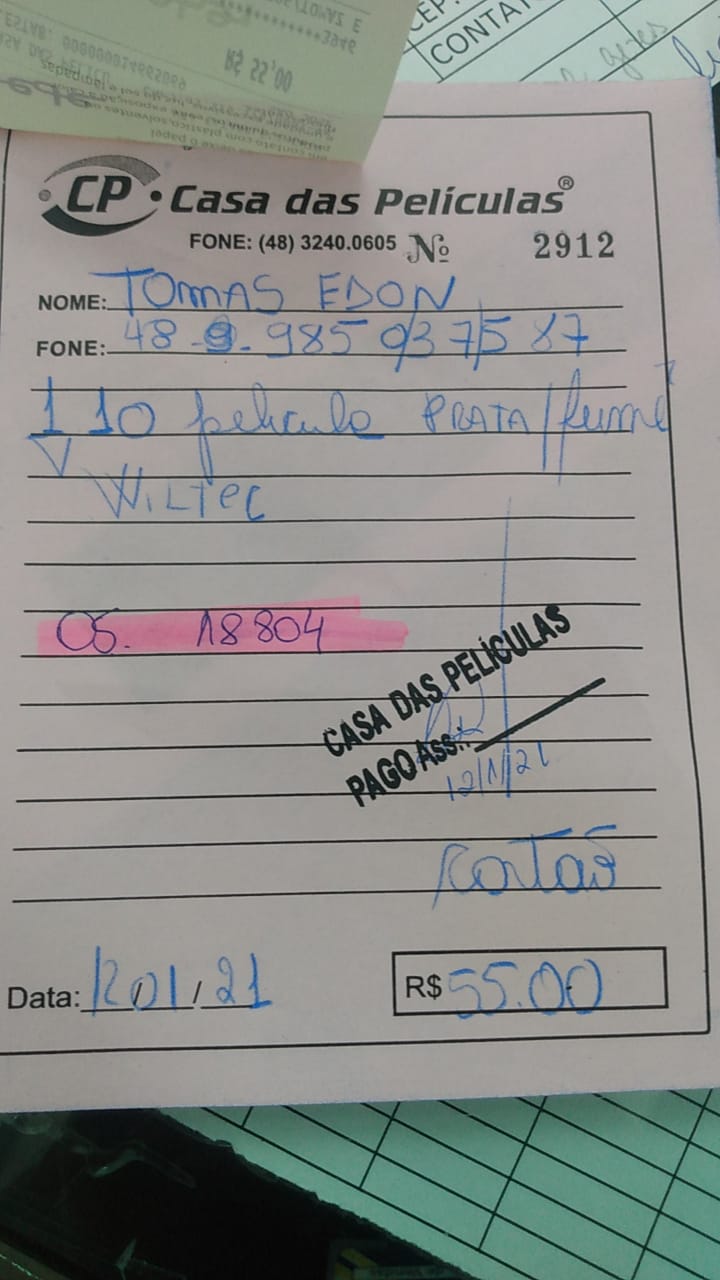 CONTAT
3946
R$ 55,00
ESTAB: 000000014665069
CP · Casa das Películas®
FONE: (48) 3240.0605 Nº 2912
NOME: TOMAS EDON
FONE: 48-9.985 037587
1 10 pelicula PRATA/fumê
WILTEC
OS. 18804
CASA DAS PELÍCULAS
PAGO Ass.:
12/1/21
Cartão
Data: 12/01/21
R$ 55.00